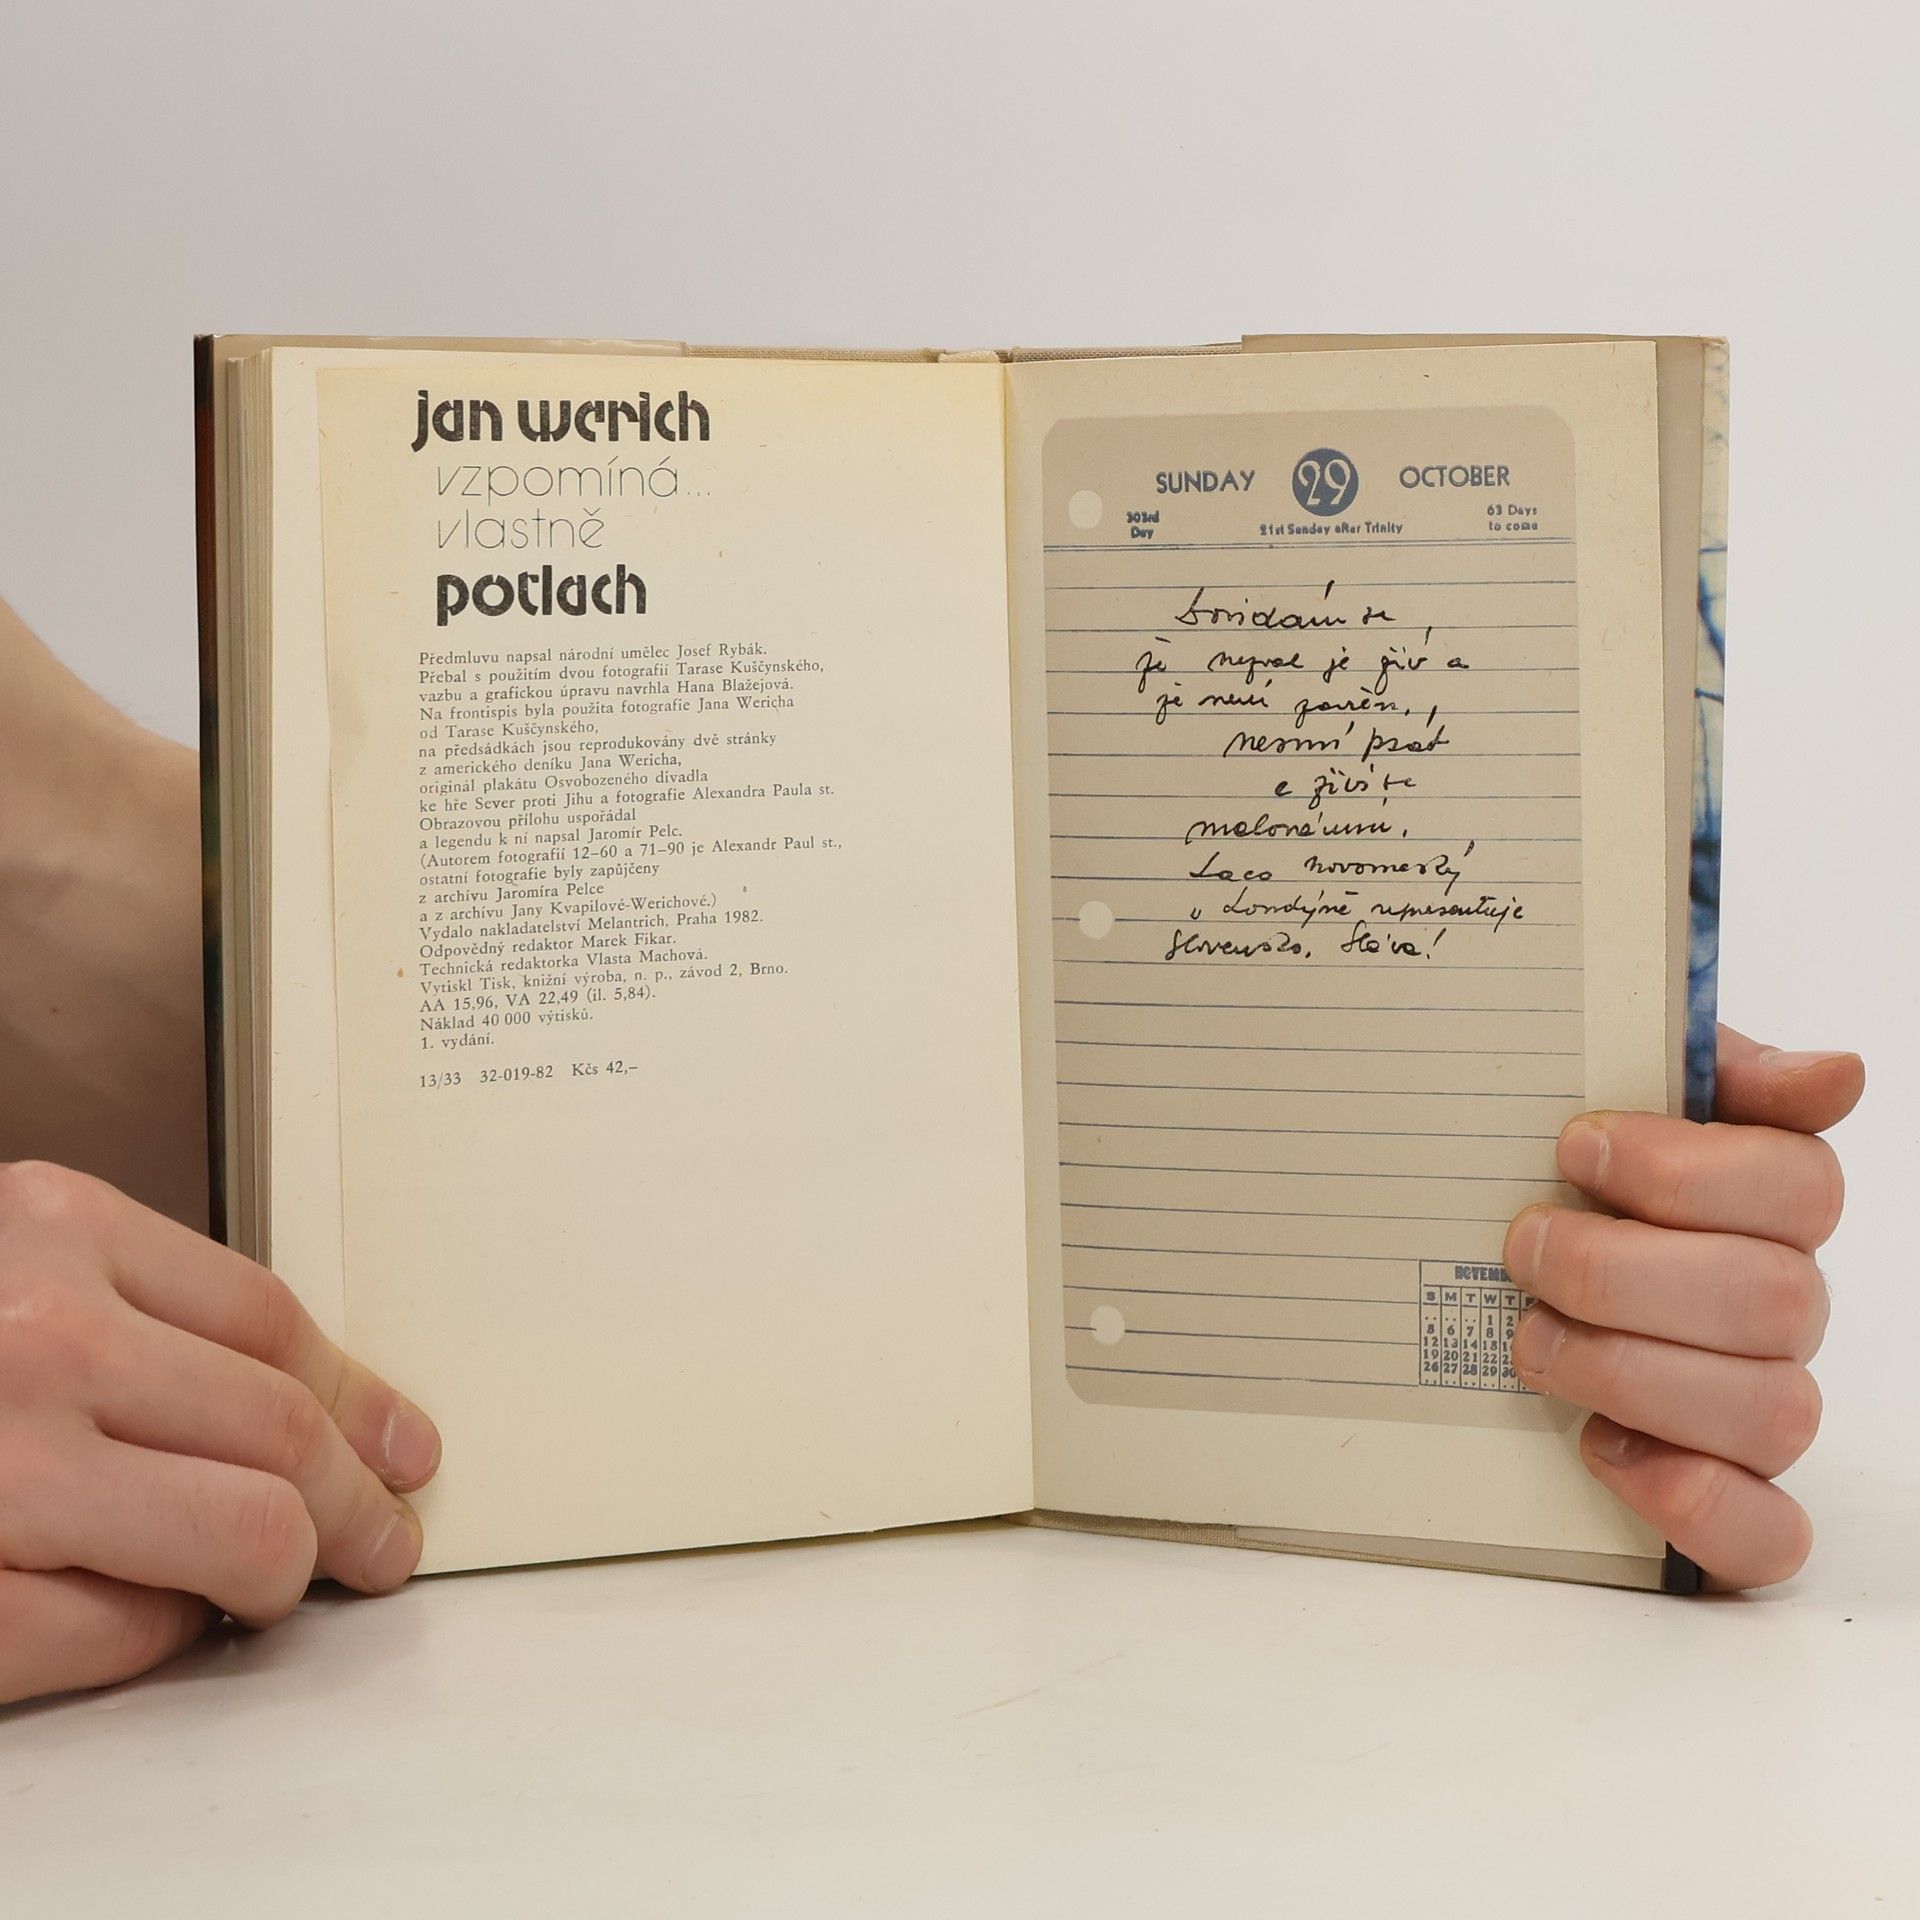 jan werich
vzpomíná...
vlastně
potlach
Předmluvu napsal národní umělec Josef Rybák.
Přebal s použitím dvou fotografií Tarase Kuščynského,
vazbu a grafickou úpravu navrhla Hana Blažejová.
Na frontispis byla použita fotografie Jana Wericha
od Tarase Kuščynského,
na předsádkách jsou reprodukovány dvě stránky
z amerického deníku Jana Wericha,
originál plakátu Osvobozeného divadla
ke hře Sever proti Jihu a fotografie Alexandra Paula st.
Obrazovou přílohu uspořádal
a legendu k ní napsal Jaromír Pelc.
(Autorem fotografií 12–60 a 71–90 je Alexandr Paul st.,
ostatní fotografie byly zapůjčeny
z archívu Jaromíra Pelce
a z archívu Jany Kvapilové-Werichové.)
Vydalo nakladatelství Melantrich, Praha 1982.
Odpovědný redaktor Marek Fikar.
Technická redaktorka Vlasta Machová.
Vytiskl Tisk, knižní výroba, n. p., závod 2, Brno.
AA 15,96, VA 22,49 (il. 5,84).
Náklad 40 000 výtisků.
1. vydání.
13/33 32-019-82 Kčs 42,–
SUNDAY 29 OCTOBER
303rd Day 21st Sunday after Trinity 63 Days to come
Dovídám se,
že Nezval je živ a
že není zavřen,
nesmí psát
a živí se
malováním.
Laco Novomeský
v Londýně representuje
Slovensko. Sláva!
S M T W T
.. .. .. 1 2
5 6 7 8 9
12 13 14 15
19 20 21 22
26 27 28 29 30